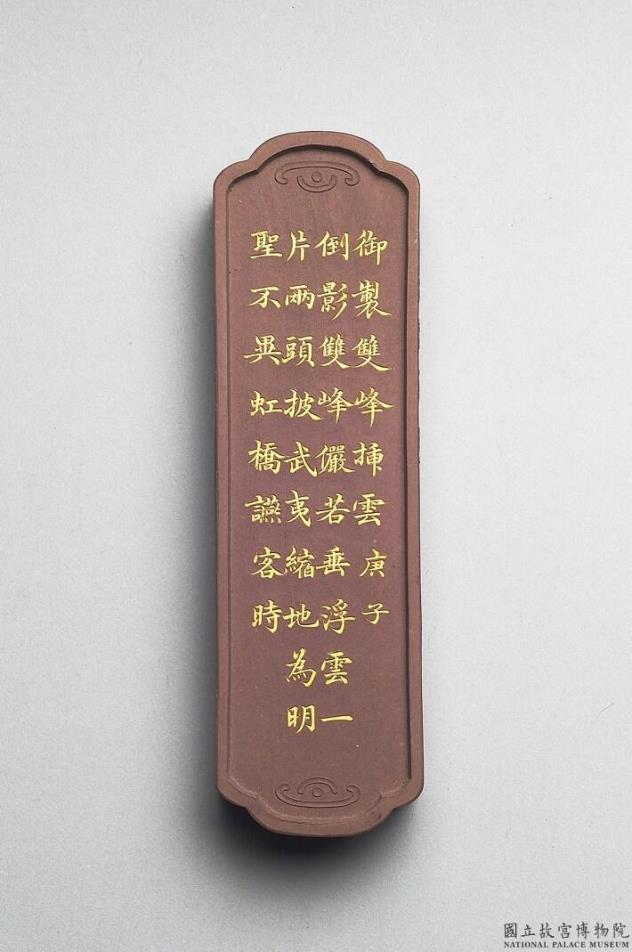 御製雙峰揷雲庚子
倒影雙峰儼若垂浮雲一
片兩頭披武夷縮地為明
聖不異虹橋讌客時
國立故宮博物院
NATIONAL PALACE MUSEUM